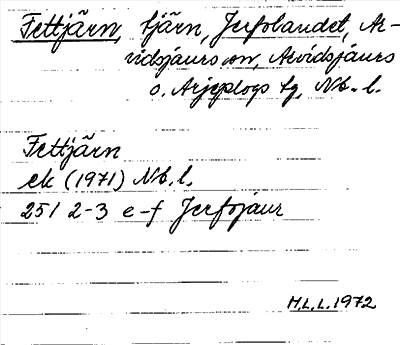 Fettjärn, tjärn, Jerfolandet, Ar-
vidsjaurs sn, Arvidsjaurs
o. Arjeplogs tg, Nb. l.
Fettjärn
ek (1971) Nb. l.
25 I 2-3 e-f Jerfojaur
H.L.L. 1972